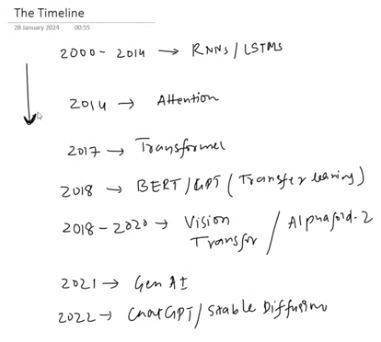 The Timeline
28 January 2024 00:55
2000 - 2014 → RNNs / LSTMs
2014 → Attention
2017 → Transformer
2018 → BERT / GPT (Transfer learning)
2018 - 2020 → Vision Transfor / Alphafold-2
2021 → Gen AI
2022 → ChatGPT / Stable Diffusion